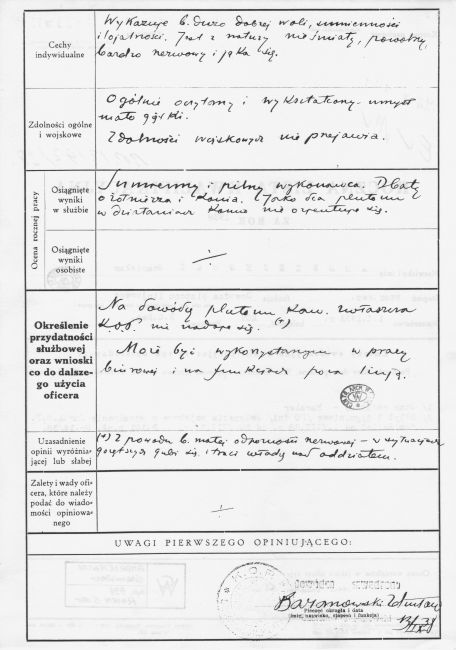 Cechy
indywidualne
Wykazuje b. dużo dobrej woli, sumienności
i lojalności. Jest z natury nieśmiały, powolny,
bardzo nerwowy i jąka się.
Zdolności ogólne
i wojskowe
Ogólnie oczytany i wykształcony umysł
mało giętki.
Zdolności wojskowych nie przejawia.
Ocena rocznej pracy
Osiągnięte
wyniki
w służbie
Sumienny i pilny wykonawca. Dbały
o żołnierza i konia. Jako dca plutonu
w działaniach konno nie orientuje się.
Osiągnięte
wyniki
osobiste
÷
Określenie
przydatności
służbowej
oraz wnioski
co do dalsze-
go użycia
oficera
Na dowódcę plutonu kaw. zwłaszcza
K.O.P. nie nadaje się. (*)
Może być wykorzystanym w pracy
biurowej i na funkcjach poza linją.
Uzasadnienie
opinii wyróżnia-
jącej lub słabej
(*) Z powodu b. małej odporności nerwowej – w sytuacjach
gorętszych gubi się i traci władzę nad oddziałem.
Zalety i wady ofi-
cera, które należy
podać do wiado-
mości opiniowa-
nego
÷
UWAGI PIERWSZEGO OPINIUJĄCEGO:
Baranowski
Pieczęć okrągła i data
(imię, nazwisko, stopień i funkcja)